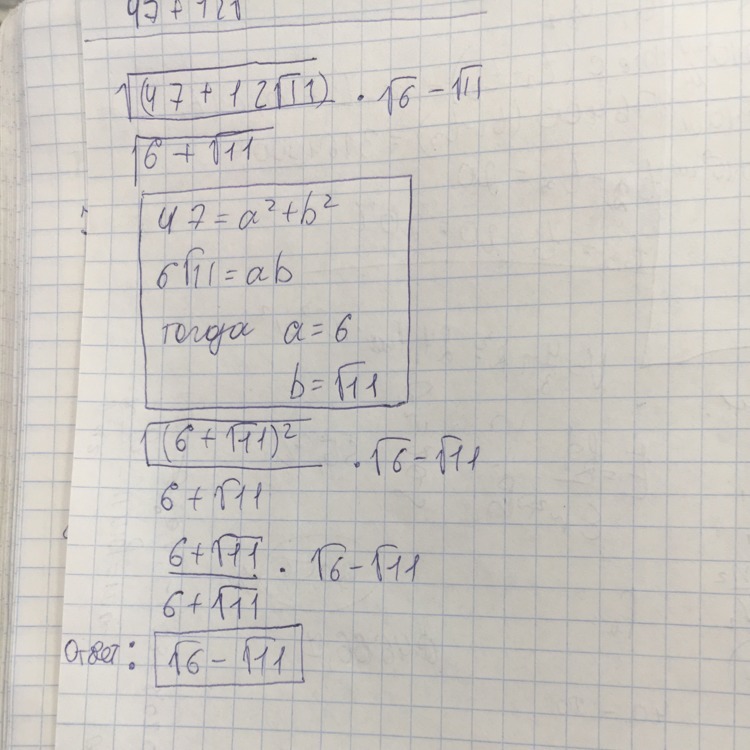 47 + 12√
√(47 + 12√11) · √6 - √11
√6 + √11
47 = a² + b²
6√11 = ab
тогда a = 6
b = √11
√(6 + √11)² · √6 - √11
6 + √11
6 + √11 · √6 - √11
6 + √11
Ответ: √6 - √11